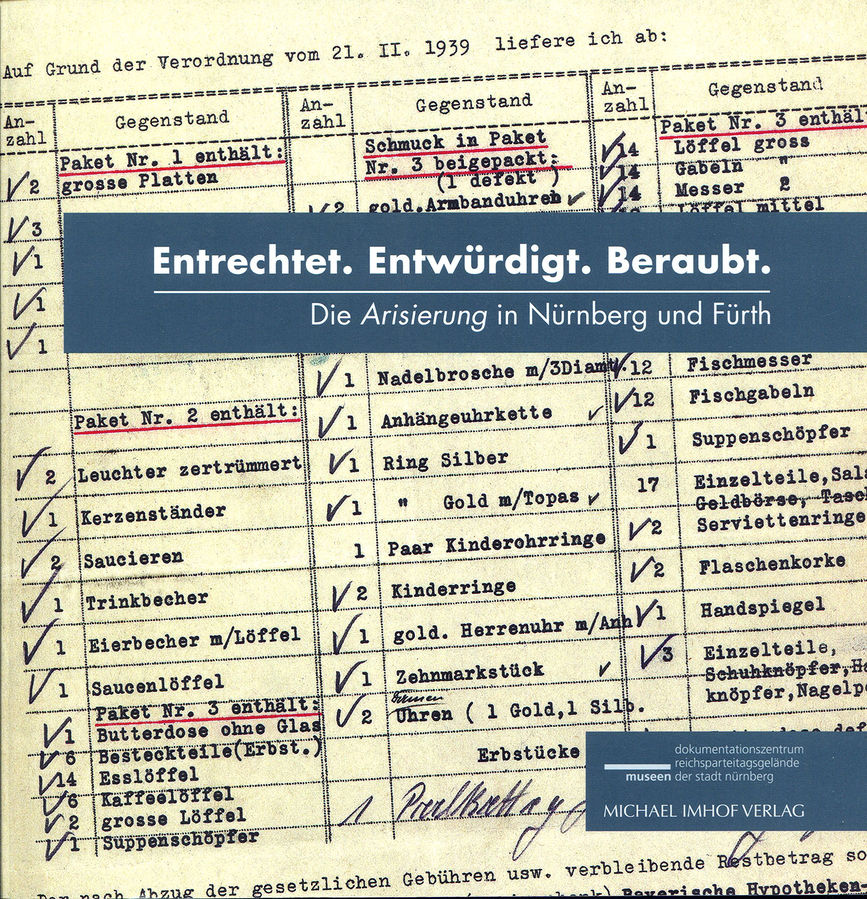 Auf Grund der Verordnung vom 21. II. 1939 liefere ich ab:
An-
zahl
Gegenstand
Paket Nr. 1 enthält:
2 grosse Platten
3
1
1
1
Paket Nr. 2 enthält:
2 Leuchter zertrümmert
1 Kerzenständer
2 Saucieren
1 Trinkbecher
1 Eierbecher m/Löffel
1 Saucenlöffel
Paket Nr. 3 enthält:
1 Butterdose ohne Glas
6 Besteckteile(Erbst.)
14 Esslöffel
6 Kaffeelöffel
2 grosse Löffel
1 Suppenschöpfer
An-
zahl
Gegenstand
Schmuck in Paket
Nr. 3 beigepackt:
(1 defekt )
2 gold.Armbanduhren
Entrechtet. Entwürdigt. Beraubt.
Die Arisierung in Nürnberg und Fürth
1 Nadelbrosche m/3Diamt.
1 Anhängeuhrkette
1 Ring Silber
1 " Gold m/Topas
1 Paar Kinderohrringe
2 Kinderringe
1 gold. Herrenuhr m/Anh
1 Zehnmarkstück
2 Uhren ( 1 Gold,1 Silb.
Erbstücke
1
An-
zahl
Gegenstand
Paket Nr. 3 enthält
14 Löffel gross
14 Gabeln "
14 Messer 2
Löffel mittel
12 Fischmesser
12 Fischgabeln
1 Suppenschöpfer
17 Einzelteile,Sala
Geldbörse, Tasch
2 Serviettenringe
2 Flaschenkorke
1 Handspiegel
3 Einzelteile,
Schuhknöpfer,
knöpfer,Nagelpo
dokumentationszentrum
reichsparteitagsgelände
museen der stadt nürnberg
MICHAEL IMHOF VERLAG
Der nach Abzug der gesetzlichen Gebühren usw. verbleibende Restbetrag so
Bayerische Hypotheken-